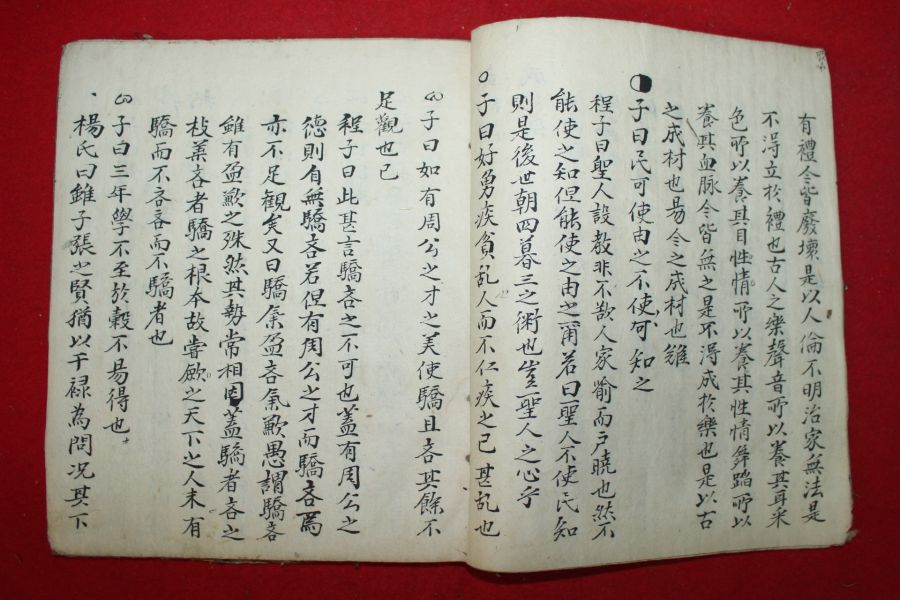 有禮今皆廢壞是以人倫不明治家無法是
不得立於禮也古人之樂聲音所以養其耳采
色所以養其目性情所以養其性情舞蹈所以
養其血脉今皆無之是不得成於樂也是以古
之成材也易今之成材也難
子曰民可使由之不使可知之
程子曰聖人設教非不欲人家喻而戶曉也然不
能使之知但能使之由之甭若曰聖人不使民知
則是後世朝四暮三之術也豈聖人之心乎
○子曰好勇疾貧乱人而不仁疾之已甚乱也
子曰如有周公之才之美使驕且吝其餘不
足觀也已
程子曰此甚言驕吝之不可也蓋有周公之
德則自無驕吝若但有周公之才而驕吝焉
亦不足觀矣又曰驕氣盈吝氣歉愚謂驕吝
雖有盈歉之殊然其勢常相因蓋驕者吝之
枝葉吝者驕之根本故嘗驗之天下之人未有
驕而不吝吝而不驕者也
子曰三年學不至於穀不易得也
楊氏曰雖子張之賢猶以干祿為問况其下